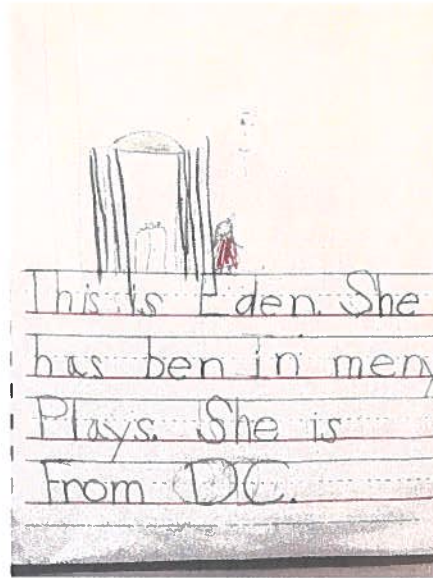 This is Eden. She
has ben in meny
Plays. She is
From DC.